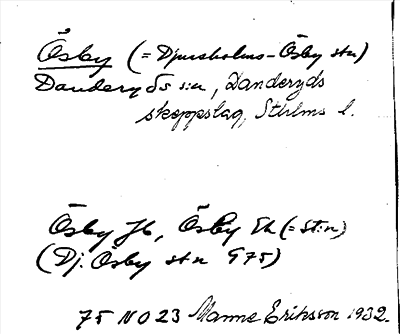 Ösby (= Djursholms-Ösby stn)
Danderyds s:n, Danderyds
skeppslag, Sthlms l.
Ösby Jb, Ösby Ek (= st:n)
(Dj. Ösby stn G75)
75 NO 23 Manne Eriksson 1932.